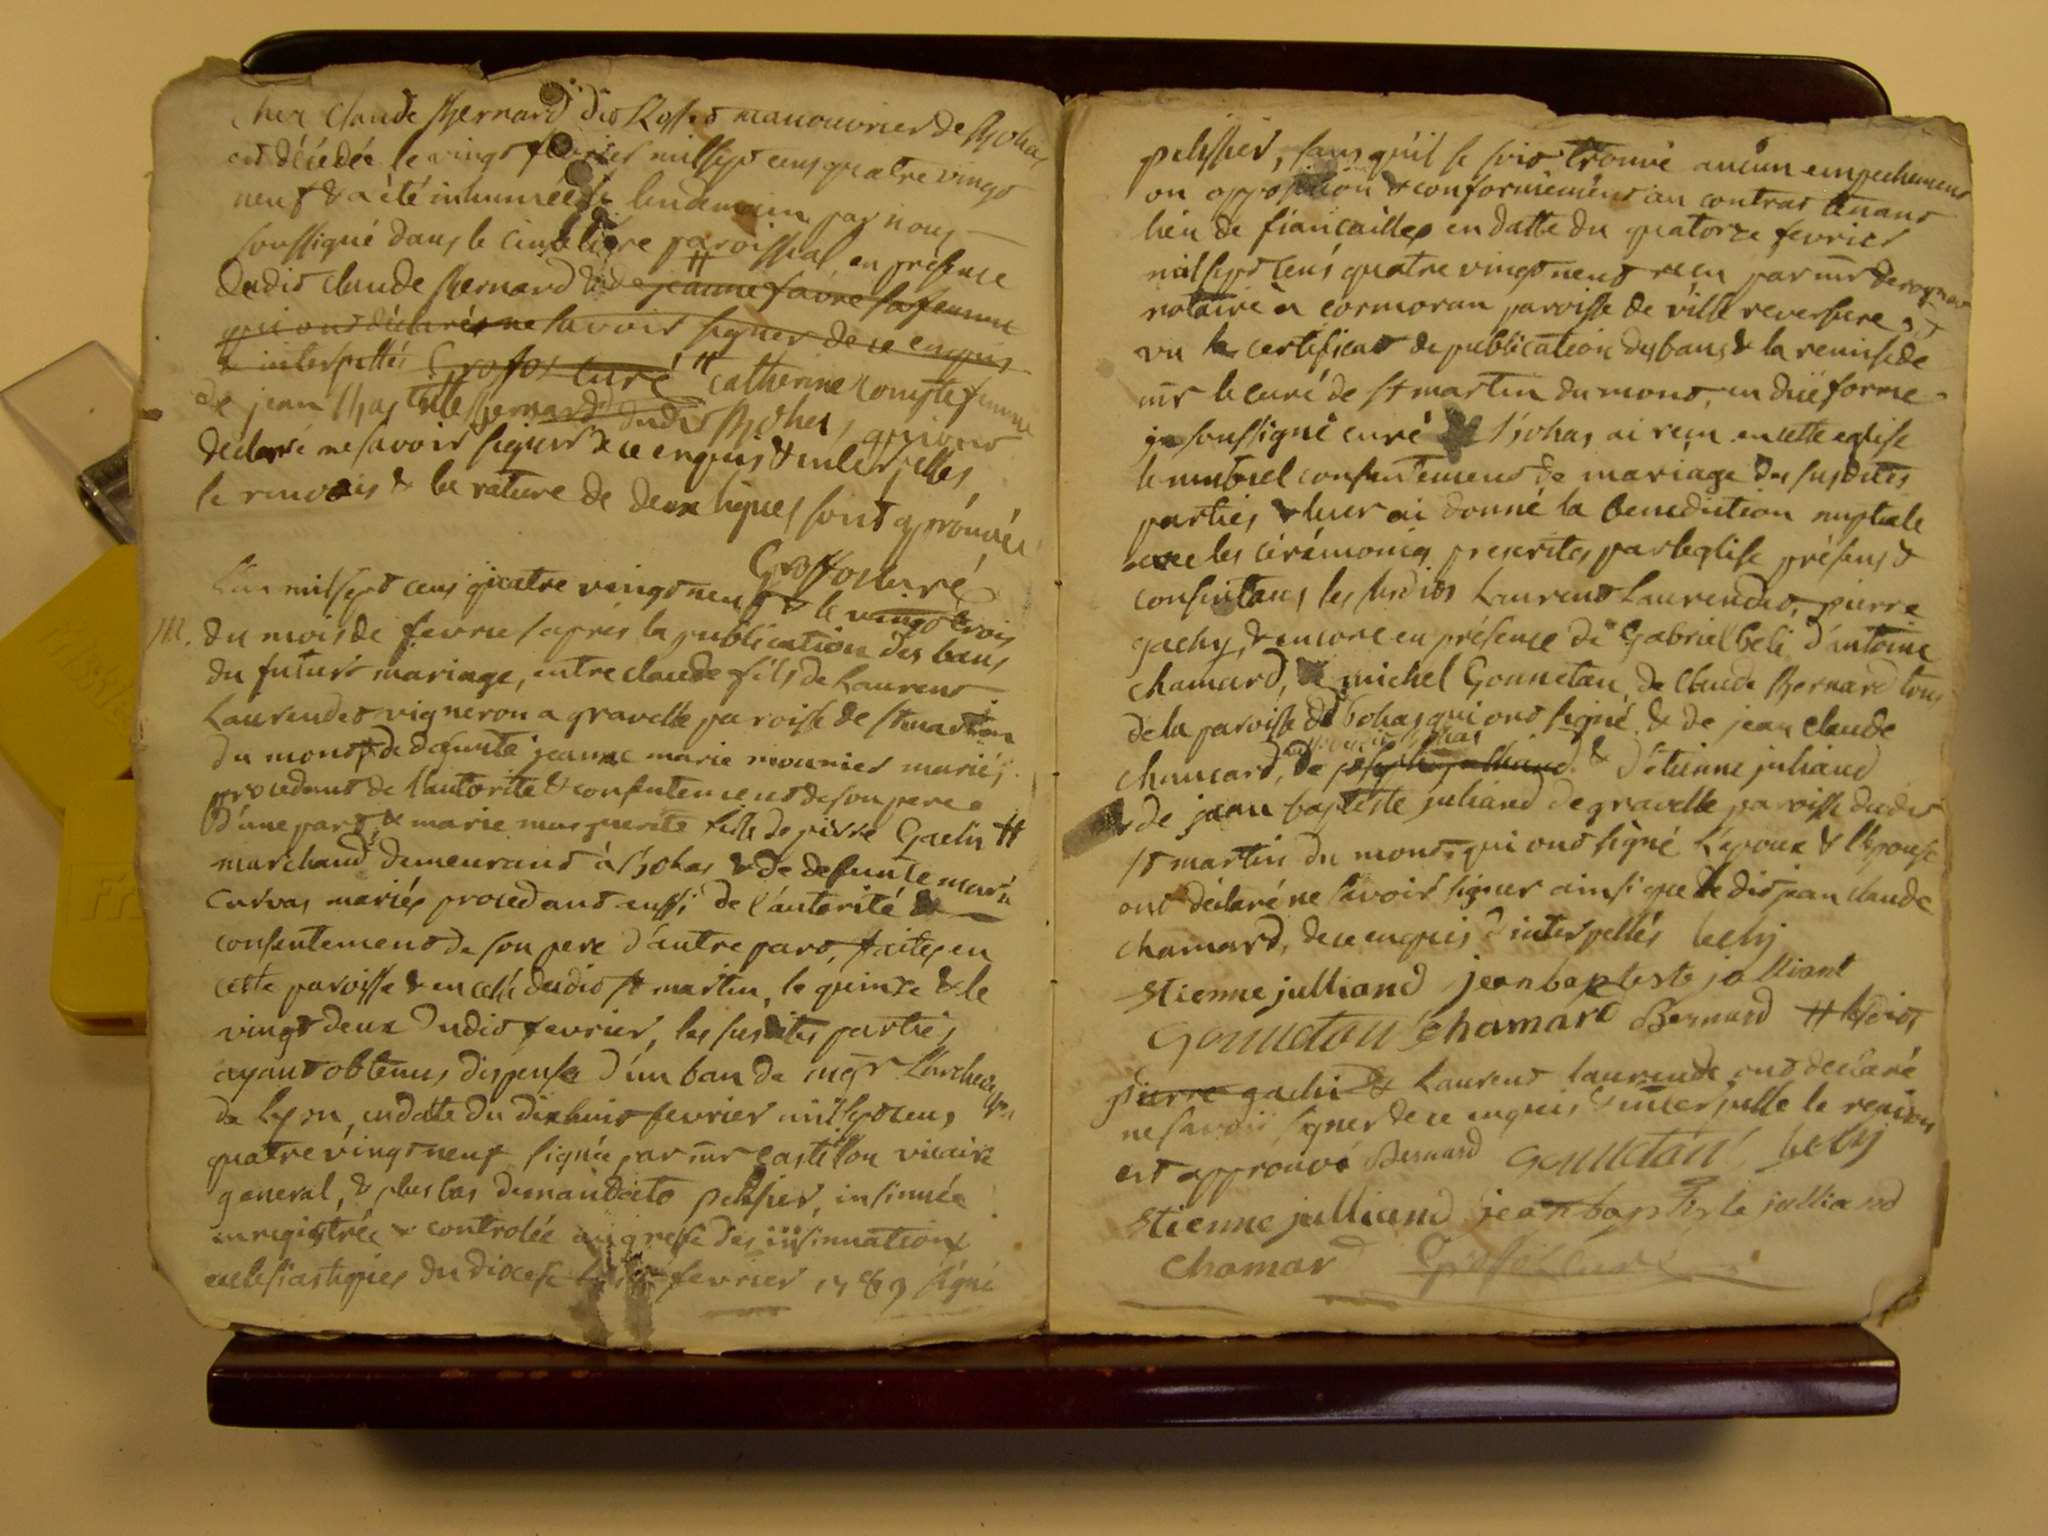 chez claude Bernard dit Rosset manouvrier de Bohas
est décédée le vingt fevrier mil sept cens quatre vingt
neuf & a été inhumée le lendemain par nous
soussigné dans le cimetiere paroissial en présence
dudit claude Bernard & de jeanne favre sa femme
qui ont déclarés ne savoir signer de ce enquis
& interpellés curé # catherine comte femme
de jean Bernard dudit Bohas, qui ont
declaré ne savoir signer de ce enquis & interpellés
le renvois & la rature de deux lignes sont approuvés
Groffos curé
L'an mil sept cens quatre vingt neuf & le vingt trois
M. du mois de fevrier après la publication des bans
du futur mariage, entre claude fils de Laurent
Laurendet vigneron a gravelle paroisse de st martin
du mont & de defunte jeanne marie mounier mariés,
procedant de l'autorité & consentement de son pere
d'une part, & marie marguerite fille de pierre Gachy #
marchand demeurant à Bohas & de defunte marie
Curvas mariés procedant aussi de l'autorité &
consentement de son pere d'autre part, faites en
cette paroisse & en celle dudit st martin, le quinze & le
vingt deux dudit fevrier, les susdites parties
ayant obtenus dispense d'un ban de mgr L'archevêque
de Lyon, en datte du dix huit fevrier mil sept cens
quatre vingt neuf signée par mr castillon vicaire
general, & plus bas de mandato pelissier, insinuée
enregistrée & controlée au greffe des insinuations
ecclesiastiques du diocese fevrier 1789 signé
pelissier, sans qu'il se soit trouvé aucun empechement
ou opposition & conformément au contrat tenant
lieu de fiancailles en datte du quatorze fevrier
mil sept cens quatre vingt neuf reçu par mr
notaire à cormoran paroisse de ville reversure,
vu le certificat de publication des bans & la remise de
mr le curé de st martin du mont, en düe forme
je soussigné curé de Bohas, ai reçu en cette eglise
le mutuel consentement de mariage des susdites
parties, & leur ai donné la benediction nuptiale
avec les cérémonies prescrites par l'eglise présens &
consentans les susdits Laurent Laurendet, pierre
gachy, & encore en présence de Gabriel beli, d'antoine
chamard, de michel Gonnetan, de claude Bernard tous
de la paroisse de Bohas qui ont signé, & de jean claude
chamard, de joseph julliand & d'étienne juliand
& de jean baptiste juliand de gravelle paroisse dudit
st martin du mont, qui ont signé L'epoux & l'epouse
ont déclaré ne savoir signer ainsi que le dit jean claude
chamard, de ce enquis & interpellés belij
Etienne julliand jean bapteste jolliant
Gonnetan chamard Bernard # lesdits
pierre gachi & Laurent laurende ont declaré
ne savoir signer de ce enquis & interpellé le renvoi
est approuvé Bernard Gonnetan belij
Etienne julliand jean baptiste julliand
chamar Groffos curé